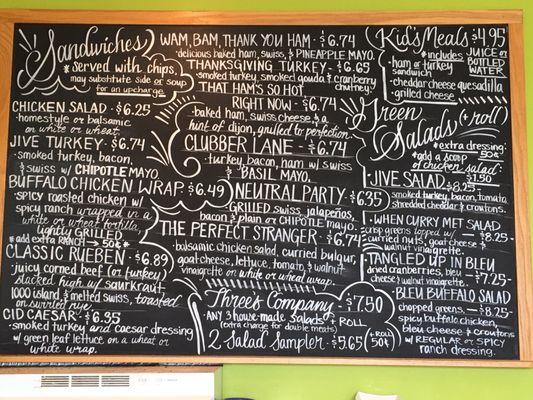 Sandwiches
*served with chips,
may substitute side or soup
for an upcharge
CHICKEN SALAD - $6.25
- homestyle or balsamic
on white or wheat.
JIVE TURKEY - $6.74
- smoked turkey, bacon,
& swiss w/ CHIPOTLE MAYO.
BUFFALO CHICKEN WRAP - $6.49
- spicy roasted chicken w/
spicy ranch wrapped in a
white or wheat tortilla,
lightly grilled
*add extra RANCH → 50¢*
CLASSIC RUEBEN - $6.89
- juicy corned beef (or turkey)
stacked high w/ saurkraut,
1000 island, & melted swiss, toasted
on swirled rye.
CID CAESAR - $6.35
- smoked turkey and caesar dressing
w/ green leaf lettuce on a wheat or
white wrap.
WAM, BAM, THANK YOU HAM - $6.74
- delicious baked ham, swiss, & PINEAPPLE MAYO.
THANKSGIVING TURKEY - $6.65
- smoked turkey, smoked gouda & cranberry
chutney
THAT HAM'S SO HOT
RIGHT NOW - $6.74
- baked ham, swiss cheese, & a
hint of dijon, grilled to perfection.
CLUBBER LANE - $6.74
- turkey, bacon, ham w/ swiss
& BASIL MAYO.
NEUTRAL PARTY - $6.35
- GRILLED swiss, jalapeños,
bacon & plain or CHIPOTLE mayo.
THE PERFECT STRANGER - $6.74
- balsamic chicken salad, curried bulgur,
goat cheese, lettuce, tomato, & walnut
vinaigrette on white or wheat wrap.
Three's Company - $7.50
*ANY 3 house-made Salads + ROLL
(extra charge for double meats)
2-SALAD SAMPLER - $5.65 (+ROLL 50¢)
Kid's Meals $4.95
*includes JUICE or BOTTLED WATER
- ham or turkey
sandwich
- cheddar cheese quesadilla
- grilled cheese
Green Salads (+ roll)
*extra dressing:
50¢
*add a scoop
of chicken salad:
$1.50
JIVE SALAD
- $8.25 -
smoked turkey, bacon, tomato,
shredded cheddar & croutons.
WHEN CURRY MET SALAD
- $8.25 -
crisp greens topped w/
curried nuts, goat cheese &
walnut vinaigrette.
TANGLED UP IN BLEU
- $7.25 -
dried cranberries, bleu
cheese & walnut vinaigrette.
BLEU BUFFALO SALAD
- $8.25 -
chopped greens,
spicy buffalo chicken,
bleu cheese & croutons
w/ REGULAR or SPICY
ranch dressing.